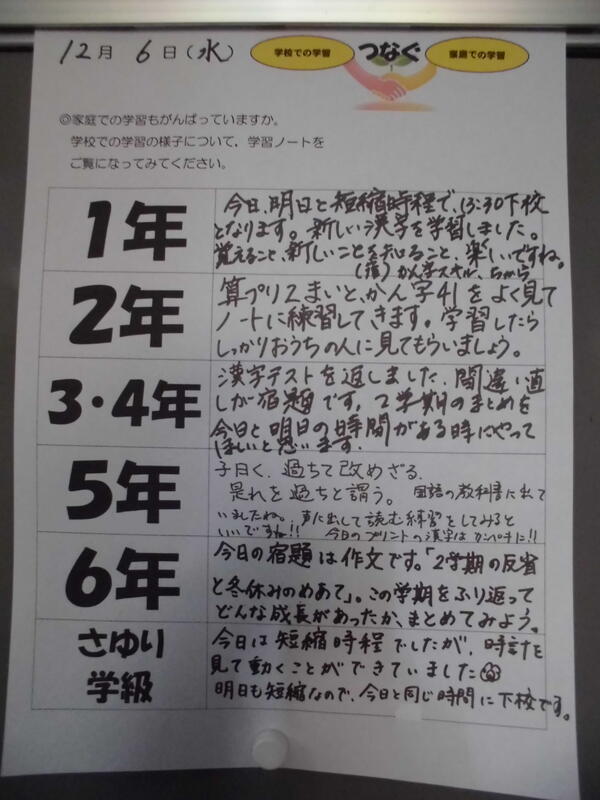 12月 6日(水)
学校での学習 つなぐ 家庭での学習
◎家庭での学習もがんばっていますか。
学校での学習の様子について，学習ノートを
ご覧になってみてください。
1年
今日、明日と短縮時程で、13:30下校
となります。新しい漢字を学習しました。
覚えること、新しいことを知ること、楽しいですね。
(宿)かん字スキル、ちから
2年
算プリ2まいと、かん字41をよく見て
ノートに練習してきます。学習したら
しっかりおうちの人に見てもらいましょう。
3・4年
漢字テストを返しました。間違い直
しが宿題です。2学期のまとめを
今日と明日の時間がある時にやって
ほしいと思います。
5年
子曰く、過ちて改めざる、
是れを過ちと謂う。 国語の教科書に出て
いましたね。声に出して読む練習をしてみると
いいですね!! 今日のプリントの漢字はカンペキに!!
6年
今日の宿題は作文です。「2学期の反省
と冬休みのめあて」。この学期をふり返って
どんな成長があったか、まとめてみよう。
さゆり
学級
今日は短縮時程でしたが、時計を
見て動くことができていました
明日も短縮なので、今日と同じ時間に下校です。